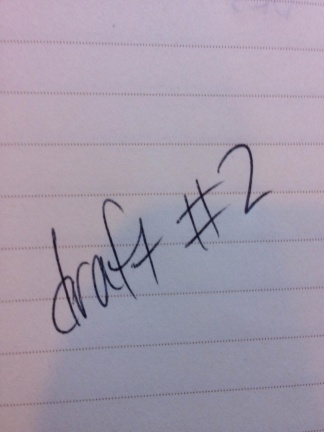 draft #2